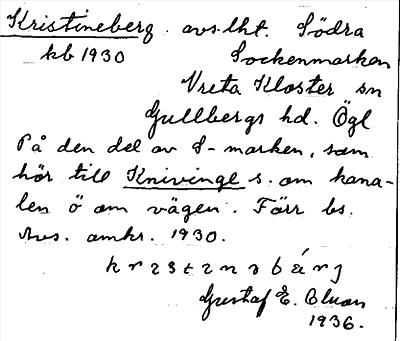 Kristineberg avs. lht. Södra
kb 1930 Sockenmarken
Vreta Kloster sn
Gullbergs hd. Ögl
På den del av S-marken, som
hör till Knivinge s. om kana-
len ö om vägen. Förr bs.
Avs. omkr. 1930.
Gustaf E.
1936.